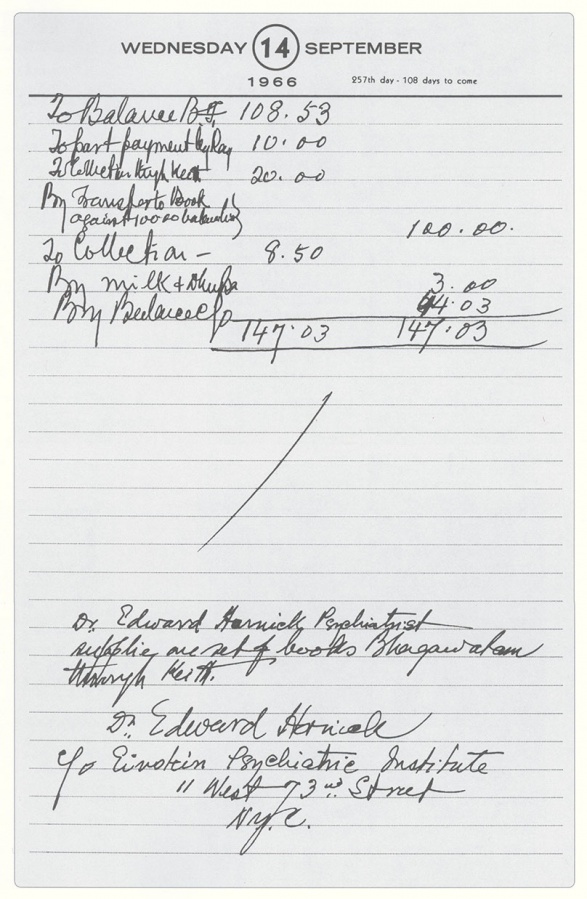 WEDNESDAY 14 SEPTEMBER
1966 257th day - 108 days to come
To Balance B.F. 108.53
To part payment by Ray 10.00
To Collection through Keith 20.00
By Transfer to Book
against 100.00 100.00.
To Collection — 8.50
By milk + Dhupa 3.00
By Balance C/o 44.03
147.03 147.03
Dr. Edward Hornick Psychiatrist
supplie one set of books Bhagawatam
through Keith.
Dr. Edward Hornick
C/o Einstein Psychiatric Institute
11 West 73rd Street
N.Y.C.